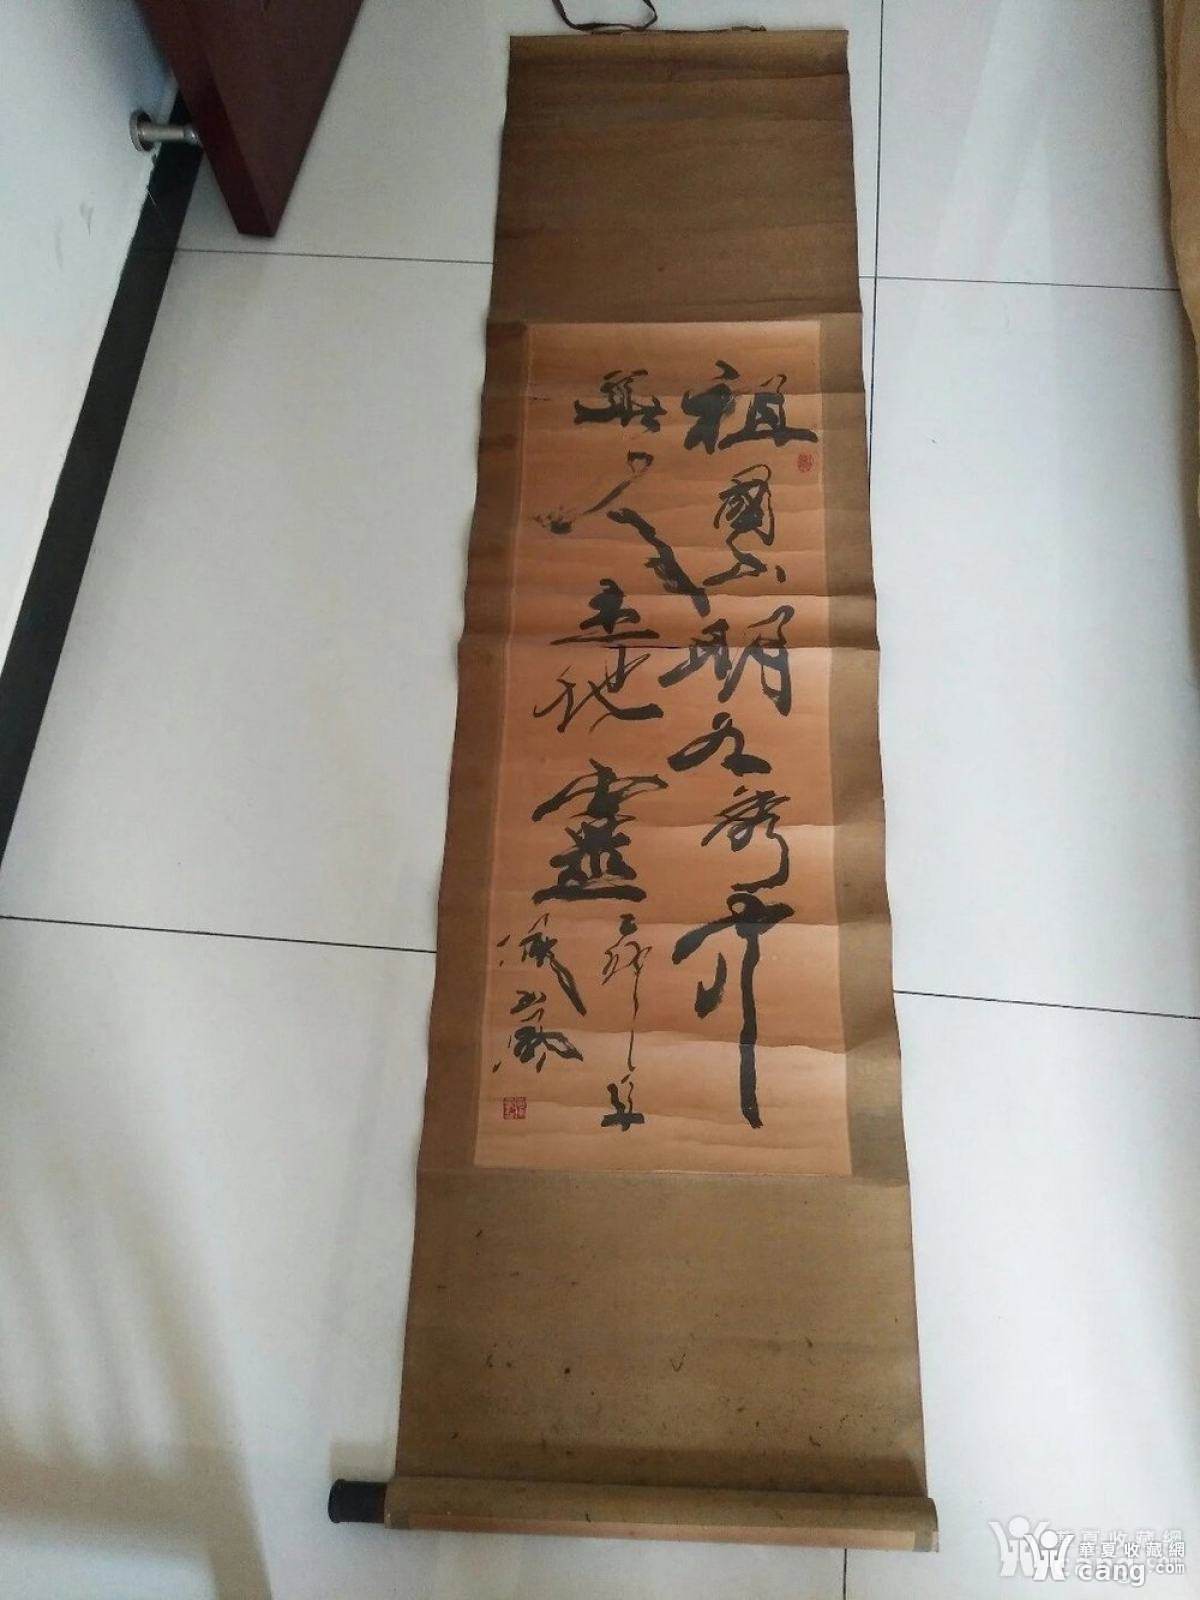 祖國山明水秀中
華人杰地靈
華夏收藏網
cang.com